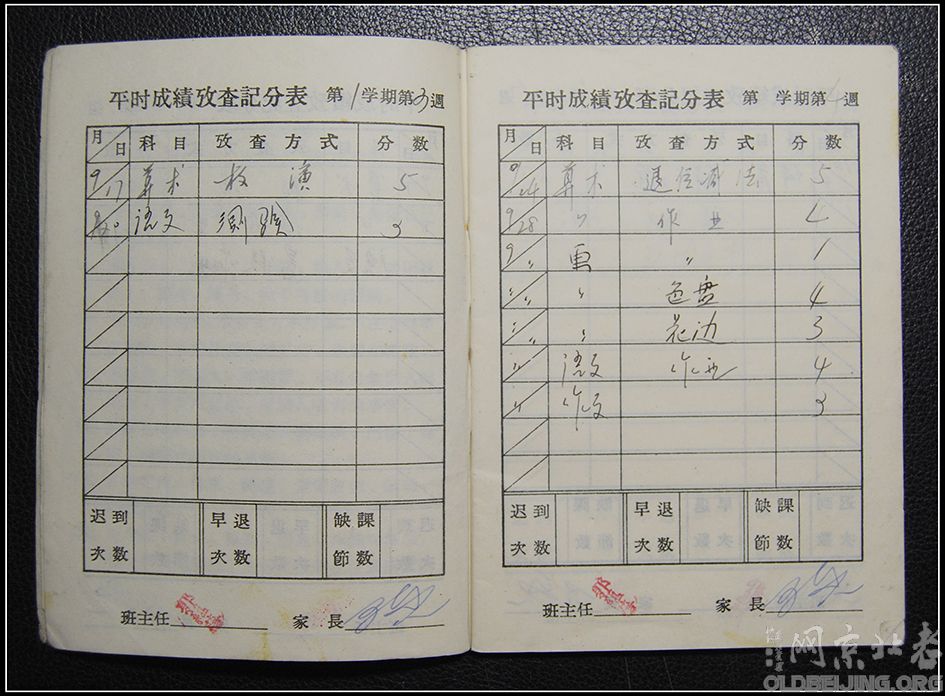 平时成績攷査記分表 第1学期第3週
月日 科目 攷査方式 分数
9/17 算术 板演 5
語文 測驗 3
迟到次数 早退次数 缺課節数
班主任 家長
平时成績攷査記分表 第 学期第4週
月日 科目 攷査方式 分数
9/24 算术 退位减法 5
9/28 〃 作业 4
9/〃 画 〃 1
〃 〃 色盘 4
〃 〃 花边 3
〃 語文 作业 4
〃 作文 3
迟到次数 早退次数 缺課節数
班主任 家長
老北京网
OLDBEIJING.ORG